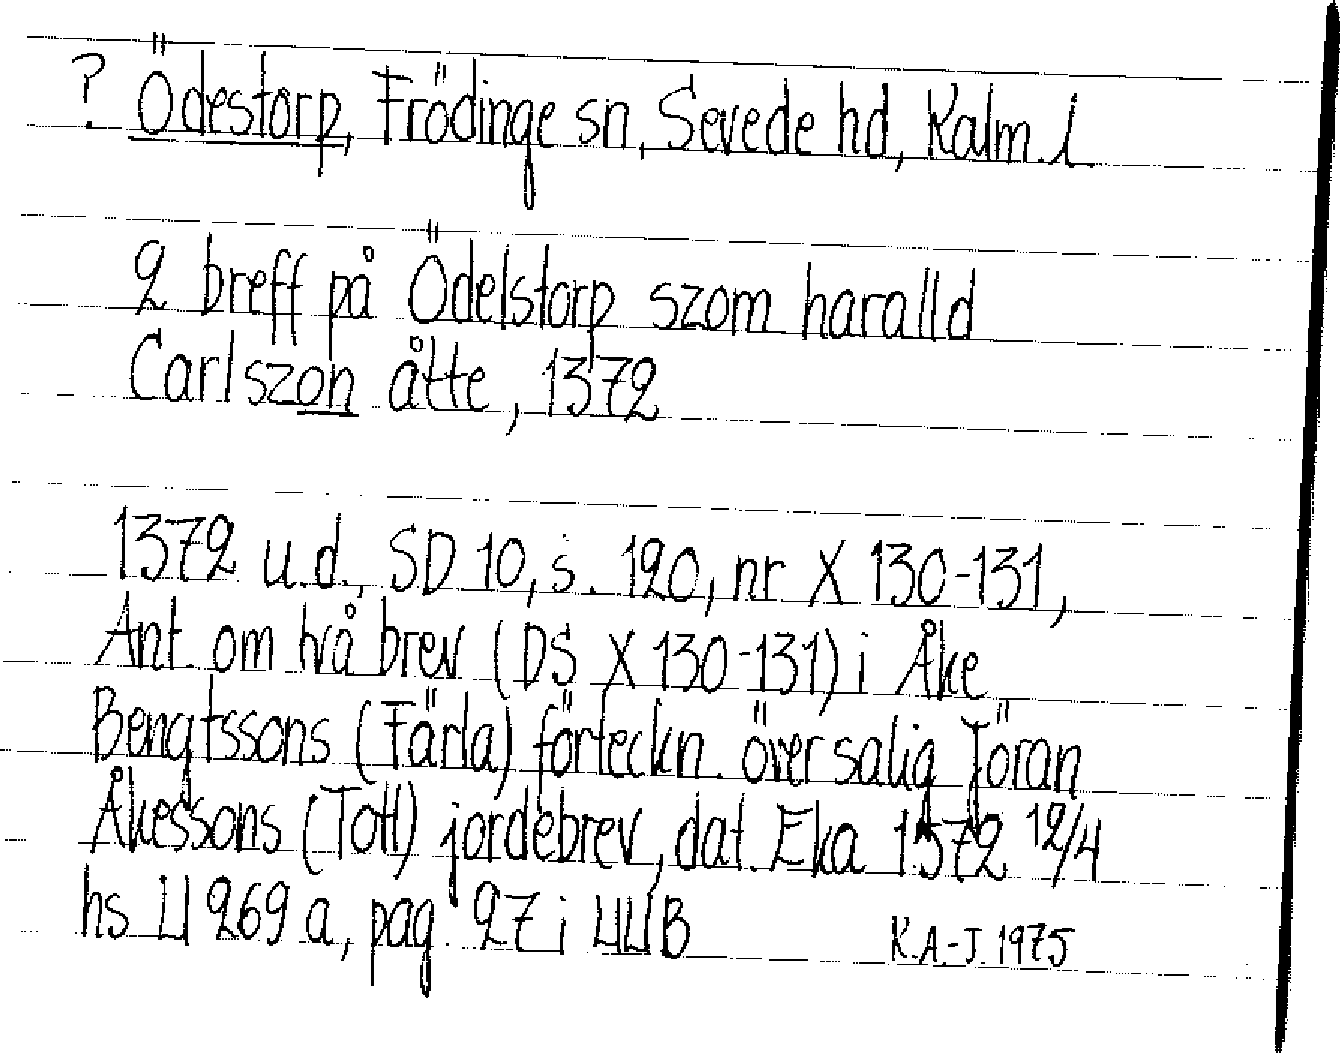 ? Ödestorp, Frödinge sn, Sevede hd, Kalm. l.
2 breff på Ödelstorp szom haralld
Carlszon åtte, 1372
1372 u.d., SD 10, s. 120, nr X 130-131,
Ant. om två brev (DS X 130-131) i Åke
Bengtssons (Färla) förteckn. över salig Jöran
Åkessons (Tott) jordebrev, dat. Eka 1572 12/4
hs L 1269 a, pag. 27 i UUB
K.A.-J. 1975